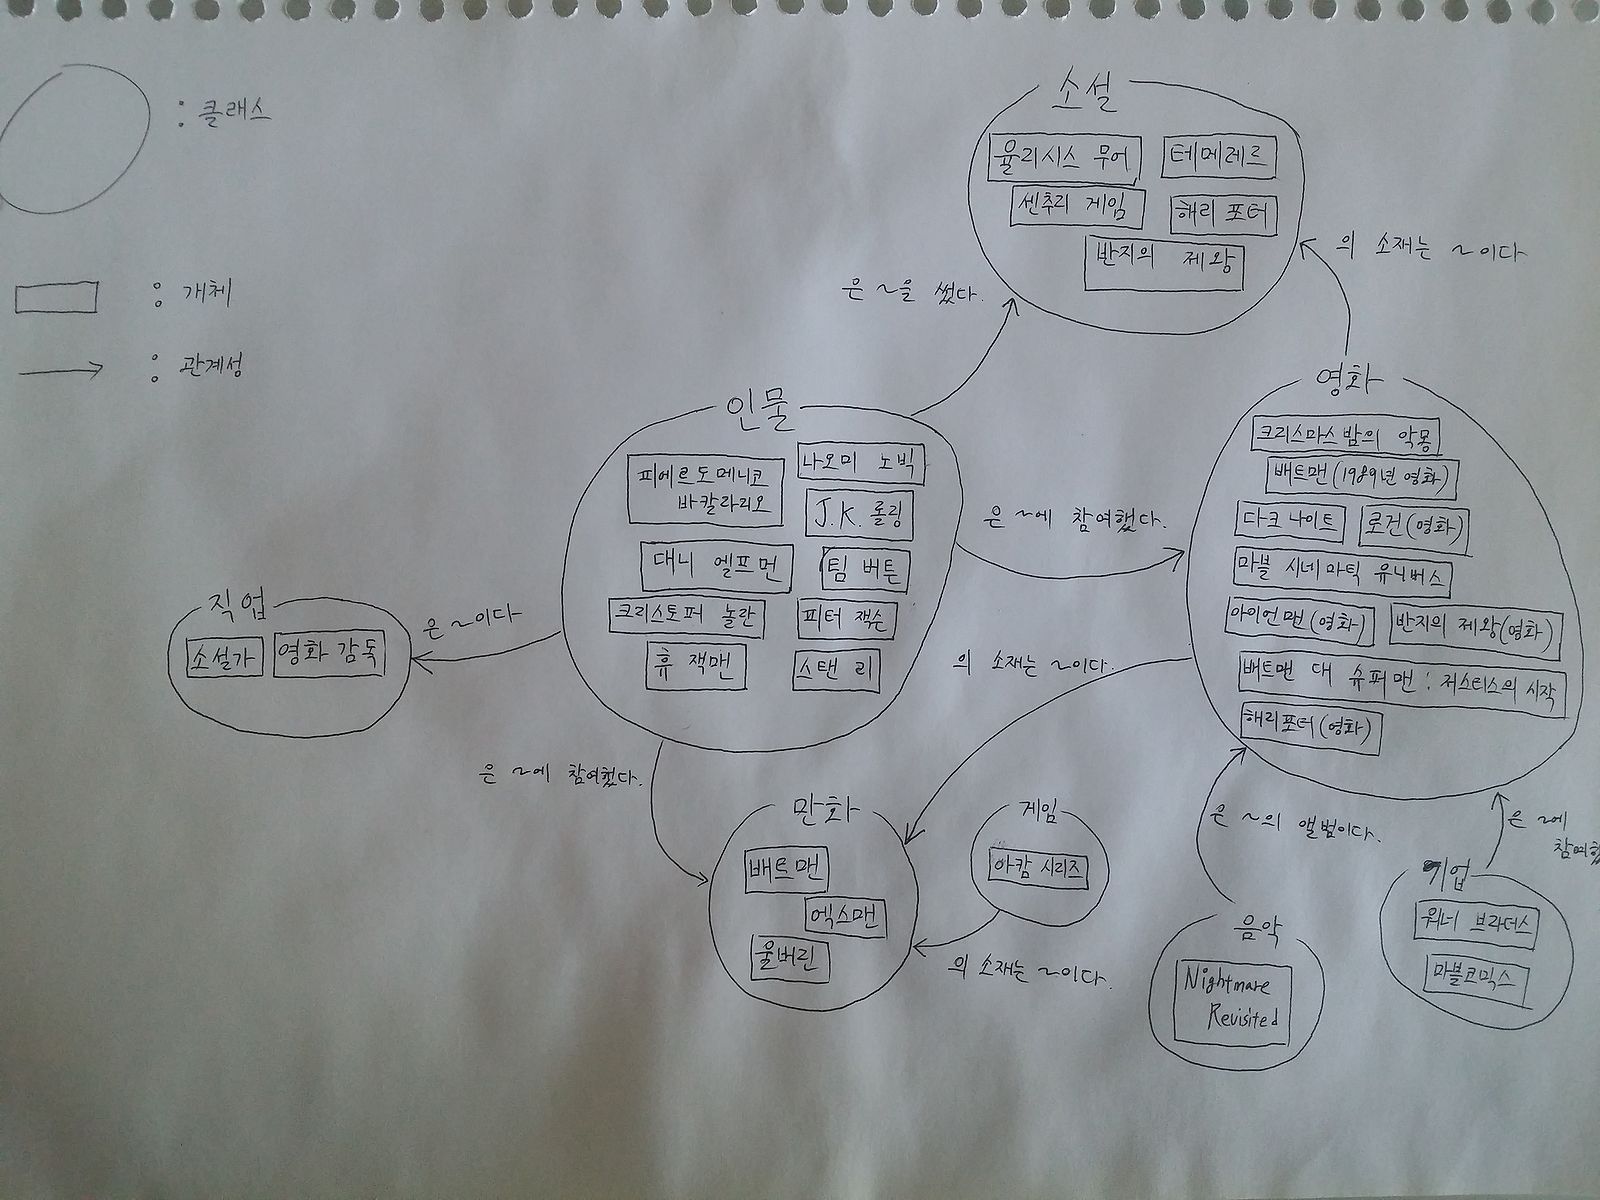 : 클래스
: 개체
: 관계성
소설
율리시스 무어
테메레르
센추리 게임
해리 포터
반지의 제왕
은 ~을 썼다.
의 소재는 ~이다
인물
피에르도메니코
바칼라리오
나오미 노빅
J.K. 롤링
대니 엘프먼
팀 버튼
크리스토퍼 놀란
피터 잭슨
휴 잭맨
스탠 리
은 ~에 참여했다.
영화
크리스마스밤의 악몽
배트맨(1989년 영화)
다크 나이트
로건(영화)
마블 시네마틱 유니버스
아이언맨(영화)
반지의 제왕(영화)
배트맨 대 슈퍼맨 : 저스티스의 시작
해리포터(영화)
직업
소설가
영화 감독
은 ~이다
의 소재는 ~이다.
은 ~에 참여했다.
만화
배트맨
엑스맨
울버린
게임
아캄 시리즈
의 소재는 ~이다.
은 ~의 앨범이다.
음악
Nightmare
Revisited
은 ~에
참여했
기업
워너 브라더스
마블코믹스